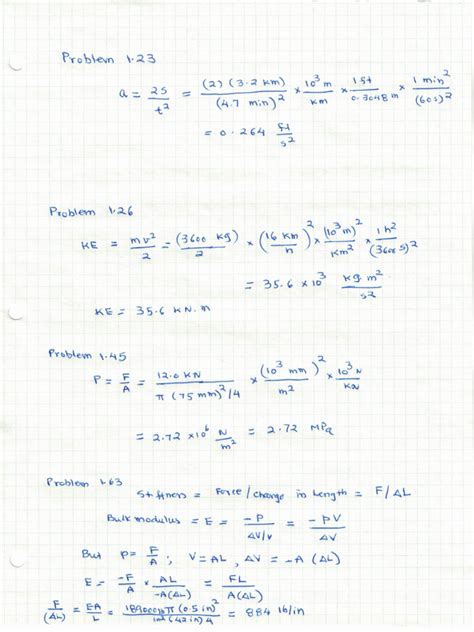 Problem 1.23
a = 2S/t² = (2)(3.2 km)/(4.7 min)² × 10³ m/km × 1 ft/0.3048 m × 1 min²/(60s)²
= 0.264 ft/s²
Problem 1.26
KE = mv²/2 = (3600 kg)/2 × (16 km/h)² × (10³ m)²/km² × 1 h²/(3600 s)²
= 35.6 × 10³ kg.m²/s²
KE = 35.6 kN.m
Problem 1.45
P = F/A = 12.0 KN/π(75 mm)²/4 × (10³ mm)²/m² × 10³ N/KN
= 2.72 ×10⁶ N/m² = 2.72 MPa
Problem 1.63
Stiffness = Force/Change in Length = F/ΔL
Bulk modulus = E = -P/ΔV/V = -PV/ΔV
But P = F/A ; V = AL, ΔV = -A (ΔL)
E = -F/A × AL/-A(ΔL) = FL/A(ΔL)
F/(ΔL) = EA/L = π(0.5 in)²/(42 in)4 = 884 lb/in